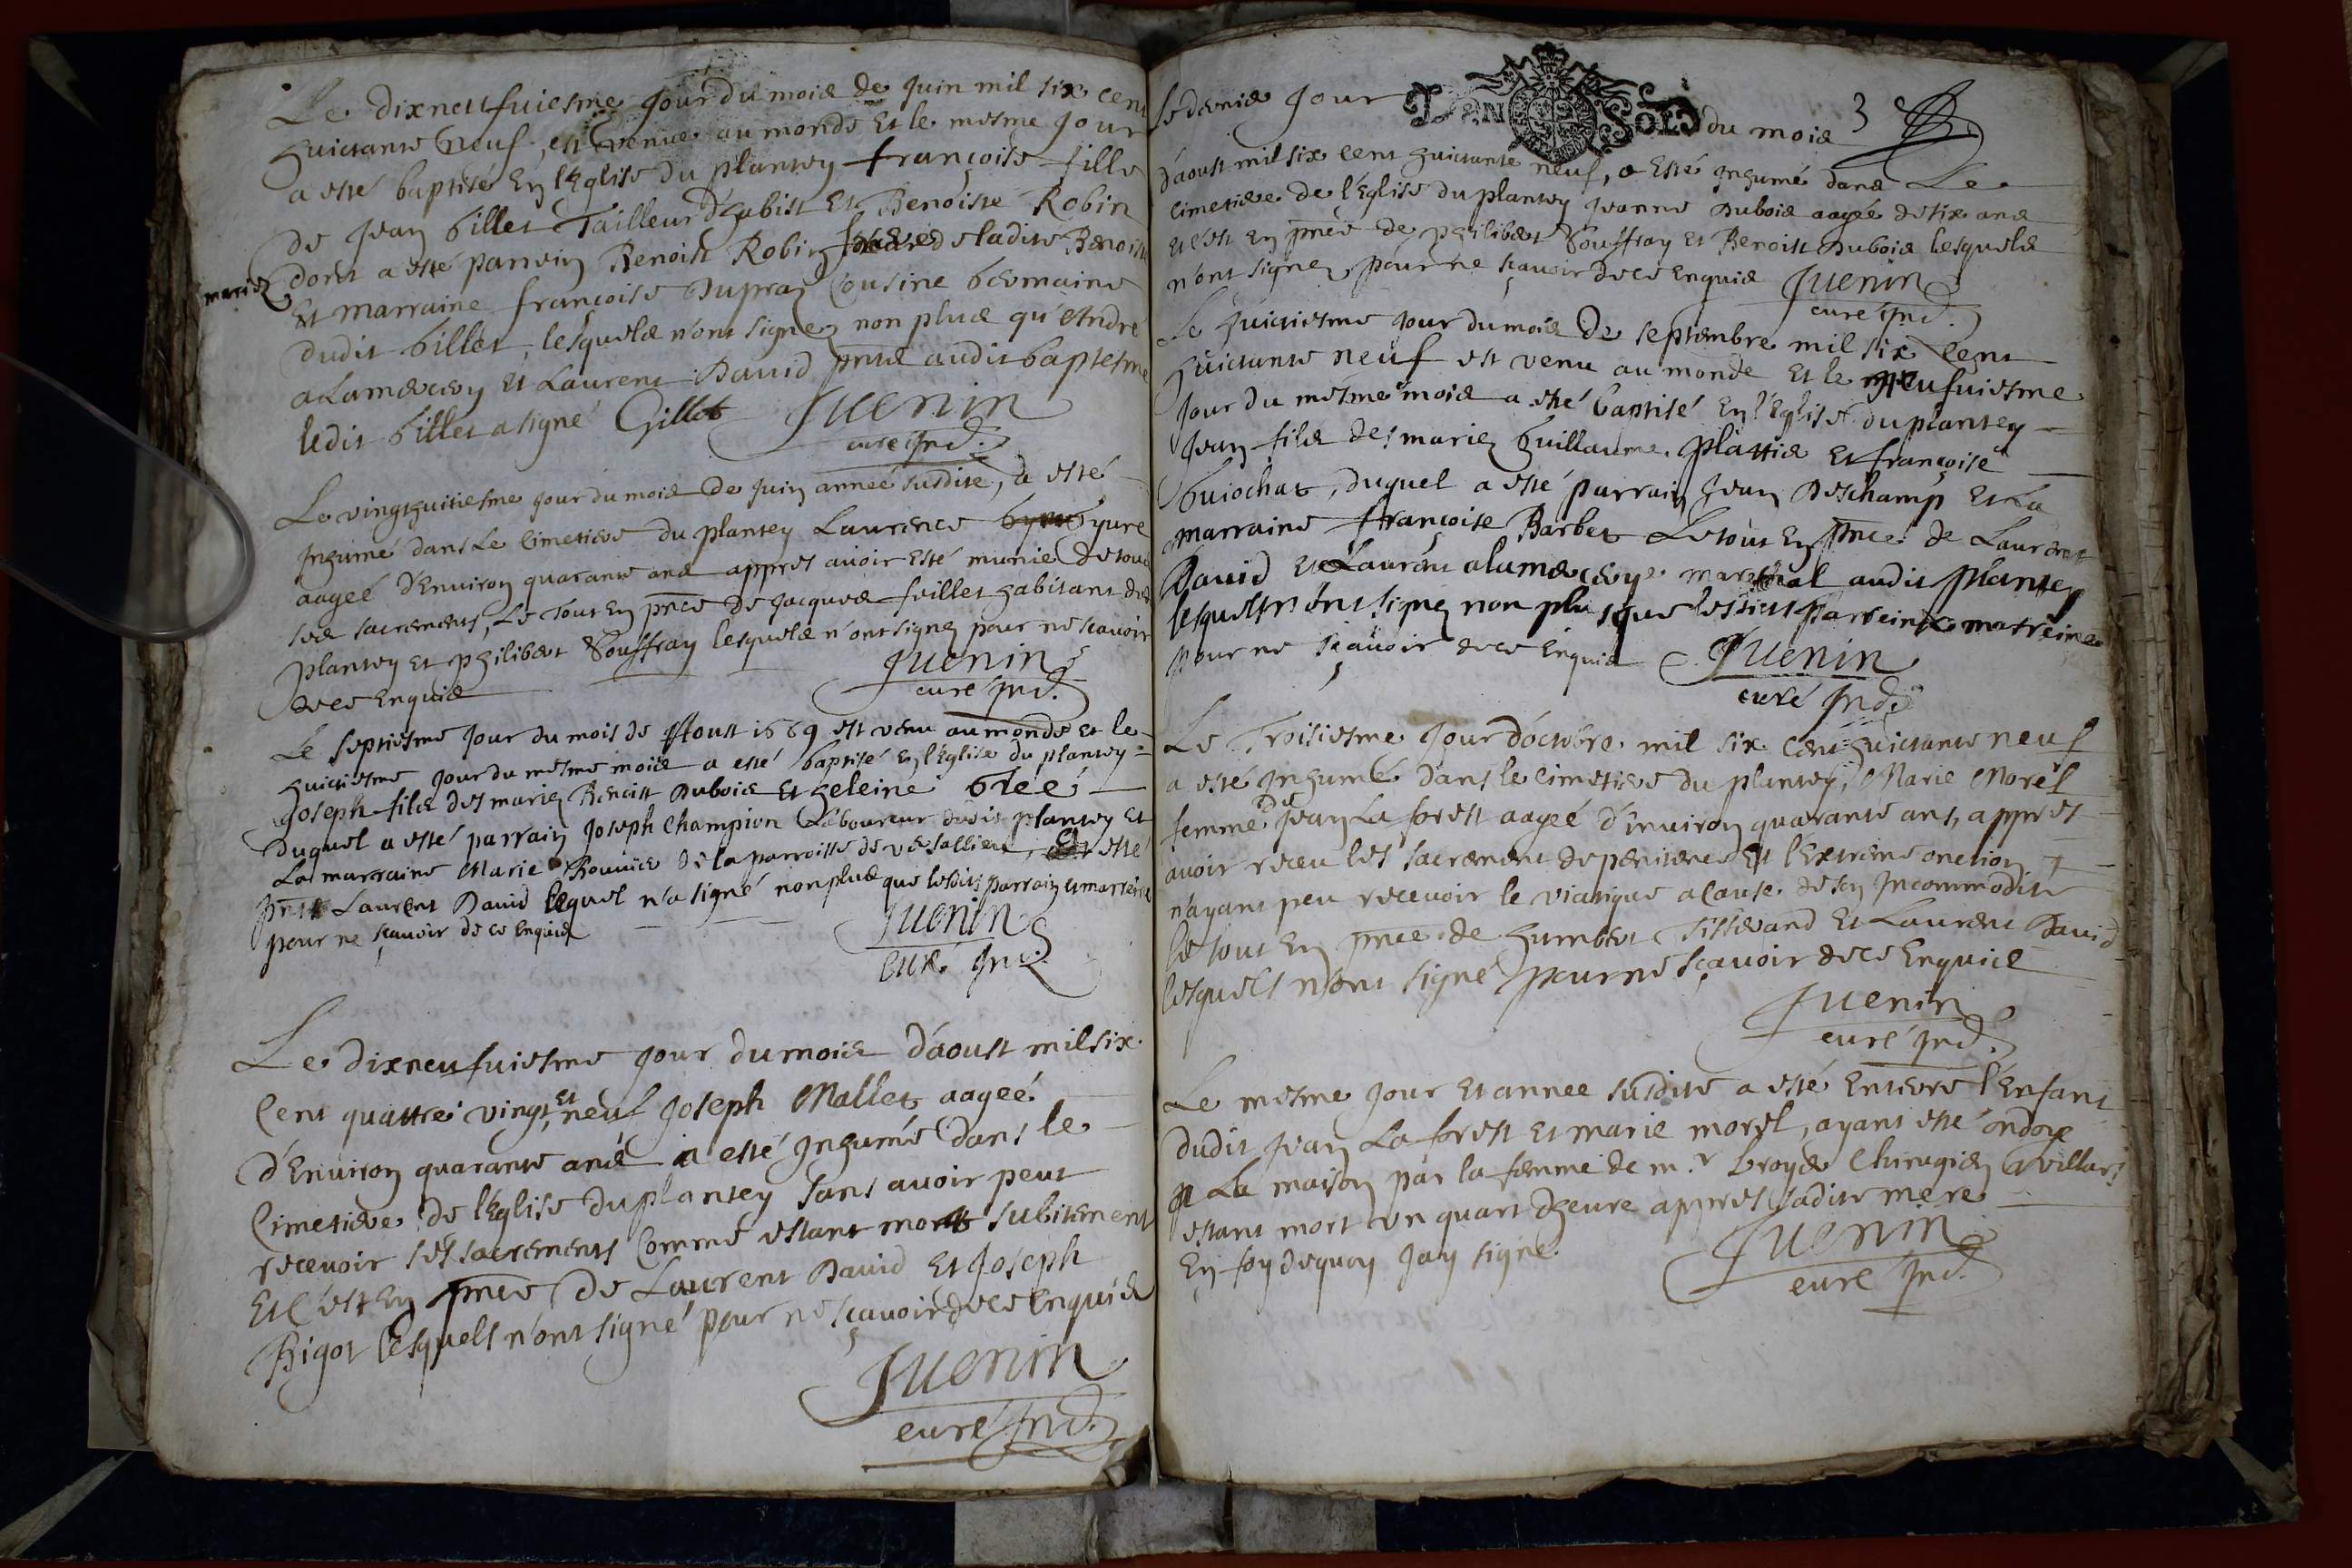 Le dixneufuiesme Jour du mois de Juin mil six cent
huictante neuf, est venue au monde et le mesme Jour
a esté baptisé En l'Eglise du plantey françoise fille
de Jean Gillet Tailleur d'habist Et Benoiste Robin
mariez dont a esté parrein Benoist Robin de ladite Benoiste
Et marraine françoise Dupraz Cousine Germaine
dudit Gillet, lesquels n'ont signez non plus qu'André
alamercery Et Laurent David pnts audit baptesme
ledit Gillet a signé Gillet Juenin
curé Ind.
Le vingthuitiesme jour du mois de Juin année susdite, a esté
Inhumé dans Le Cimetiere du plantey Laurence Gyure
aagée d'Environ quarante ans appres avoir Esté munie de tous
ses sacrements, Le Tout En pnce de Jacques feillet habitant du
plantey Et philibert Souffray lesquels n'ont signez pour ne scavoir
de ce Enquis
Juenin
curé Ind.
Le septiesme Jour du mois de Aoust 1689 est venu au monde et le
huictiesme Jour du mesme mois a esté baptisé En l'Eglise du plantey
Joseph fils des mariez Benoist Dubois Et heleine Glée
duquel a esté parrain Joseph Champion Laboureur dudit plantey Et
La marraine Marie Bouvier de la parroisse de versallieu, Et esté
pnt Laurent David lequel n'a signé non plus que lesdits parrain et marreine
pour ne scavoir de ce Enquis
Juenin
curé Ind.
Le dixneufuiesme Jour du mois d'aoust mil six
Cent quattre vingt et neuf Joseph Mallet aageé
d'Environ quarante ans a esté Inhumé dans le
Cimetiere de l'Eglise du plantey sans avoir peut
recevoir ses sacrements Comme estant mort subitement
Et c'est En pnce de Laurent David Et Joseph
Bigot lesquels n'ont signé pour ne sçavoir de ce Enquis
Juenin
curé Ind.
le dernier Jour DEN SOLS du mois 3
d'aoust mil six Cent huictante neuf, a Esté Inhumé dans Le
Cimetiere de l'Eglise du plantey Jeanne Dubois aagée de six ans
Et c'est En pnce de philibert Souffray Et Benoist Dubois lesquels
n'ont signez pour ne sçavoir de ce Enquis Juenin
curé Ind.
Le huictiesme Jour du mois De septembre mil six Cent
huictante neuf est venu au monde Et le neufuiesme
Jour du mesme mois a esté baptisé En l'Eglise du plantey
Jean fils des mariez Guillaume Plattier Et françoise
Guiochat, duquel a esté parrain Jean Deschamp Et La
marraine françoise Barbet Le tout En pnce de Laurent
David Et Laurent alamercery mareschal audit plantey
lesquels n'ont signez non plus que lesdits parrein & marreine
pour ne sçavoir de ce Enquis Juenin
curé Ind.
Le Troisiesme Jour d'octobre mil six cent huictante neuf
a esté Inhumé dans le Cimetiere du plantey, Marie Morel
femme de Jean La forest aageé d'Environ quarante ans, appres
avoir receu les sacrement de penitence Et l'Extreme onction
n'ayant peu recevoir le viatique a Cause de son Incommodite
le tout En pnce de humbert Tisserand Et Laurent David
lesquels n'ont signé pour ne sçavoir de ce Enquis
Juenin
curé Ind.
Le mesme Jour Et annee susdite a esté Enterré l'Enfant
dudit Jean La forest Et marie morel, ayant esté ondoye
a La maison par la femme de m.r Chirugien a villars
estant mort un quart d'heure appres sadite mere
En foy dequoy J'ay signé.
Juenin
curé Ind.